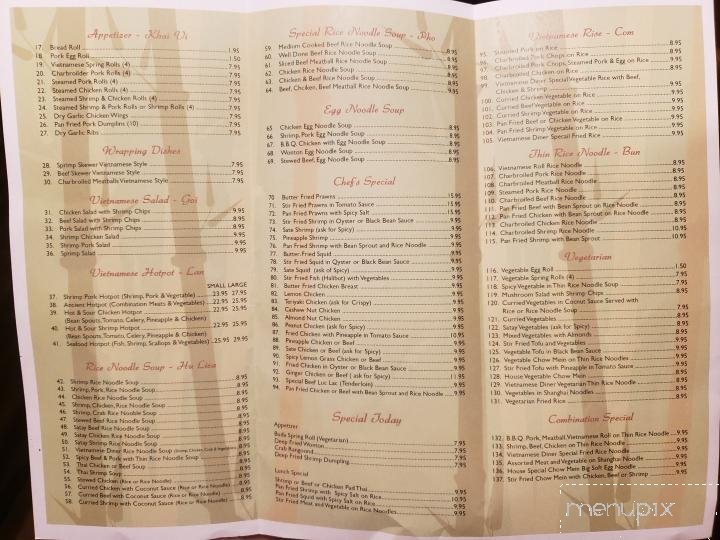 Appetizer - Khai Vi
17. Bread Roll 1.95
18. Pork Egg Roll 1.50
19. Vietnamese Spring Rolls (4) 7.95
20. Charbroilder Pork Rolls (4) 7.95
21. Steamed Pork Rolls (4) 7.95
22. Steamed Chicken Rolls (4) 7.95
23. Steamed Shrimp & Chicken Rolls (4) 7.95
24. Steamed Shrimp & Pork Rolls or Shrimp Rolls (4) 7.95
25. Dry Garlic Chicken Wings 7.95
26. Pan Fried Pork Dumplins (10) 7.95
27. Dry Garlic Ribs 7.95
Wrapping Dishes
28. Sprimp Skewer Vietnamese Style 7.95
29. Beef Skewer Vietnamese Style 7.95
30. Charbroiled Meatballs Vietnamese Style 7.95
Vietnamese Salad - Goi
31. Chicken Salad with Shrimp Chips 9.95
32. Beef Salad with Shrimp Chips 8.95
33. Pork Salad with Shrimp Chips 9.95
34. Shrimp Chicken Salad 9.95
35. Shrimp Pork Salad 9.95
36. Sprimp Salad 9.95
Vietnamese Hotpot - Lau
SMALL LARGE
37. Shrimp Pork Hotpot (Shrimp, Pork & Vegetable) 23.95 27.95
38. Ancient Hotpot (Combination Meats & Vegetables) 22.95 25.95
39. Hot & Sour Chicken Hotpot 22.95 25.95
(Bean Spouts, Tomato, Celery, Pineapple & Chicken)
40. Hot & Sour Shrimp Hotpot 22.95 25.95
(Bean Spouts, Tomato, Celery, Pineapple & Chicken)
41. Seafood Hotpot (Fish, Shrimp, Scallops & Vegetables) 25.95 29.95
Rice Noodle Soup - Hu Lieu
42. Shrimp Rice Noodle Soup 8.95
43. Shrimp, Pork, Rice Noodle Soup 8.95
44. Chicken Rice Noodle Soup 8.95
45. Shrimp, Chicken, Rice Noodle Soup 8.95
46. Shrimp, Crab Rice Noodle Soup 8.95
47. Stewed Beef Rice Noodle Soup 8.95
48. Satay Beef Rice Noodle Soup 8.95
49. Satay Chicken Rice Noodle Soup 8.95
50. Satay Shrimp Rice Noodle Soup 8.95
51. Vietnamese Diner Rice Noodle Soup 8.95
52. Spicy Beef & Pork with Thin Rice Noodle Soup 8.95
53. Thai Chicken or Beef Soup 8.95
54. Thai Shrimp Soup 8.95
55. Stewed Chicken (Rice or Rice Noodle) 8.95
56. Curried Chicken with Coconut Sauce (Rice or Rice Noodle) 8.95
57. Curried Beef with Coconut Sauce (Rice or Rice Noodle) 8.95
58. Curried Shrimp with Coconut Sauce (Rice or Rice Noodle) 8.95
Special Rice Noodle Soup - Pho
59. Medium Cooked Beef Rice Noodle Soup 8.95
60. Well Done Beef Rice Noodle Soup 8.95
61. Sliced Beef Meatball Rice Noodle Soup 8.95
62. Chicken Rice Noodle Soup 8.95
63. Chicken & Beef Rice Noodle Soup 8.95
64. Beef, Chciken, Beef Meatball Rice Noodle Soup 9.95
Egg Noodle Soup
65 Chicken Egg Noodle Soup 8.95
66 Shrimp, Pork Egg Noodle Soup 8.95
67. B.B.Q. Chicken with Egg Noodle Soup 9.95
68 Wonton Egg Noodle Soup 8.95
69. Stewed Beef, Egg Noodle Soup 8.95
Chef's Special
70 Butter Fried Prawns 15.95
71. Stir Fried Prawns in Tomato Sauce 15.95
72. Pan Fried Prawns with Spicy Salt 15.95
73. Stir Fried Shrimp in Oyster or Black Bean Sauce 9.95
74. Sate Shrimp (ask for Spicy) 9.95
75. Pineapple Shrimp 9.95
76. Pan Fyiki Shrimp with Bean Sprout and Rice Noodle 9.95
77. Butter Fried Squid 9.95
78. Stir Fried Squid in Oyster or Black Bean Sauce 9.95
79. Sate Squid (ask of Spicy) 9.95
80. Stir Fried Fish (Halibut) with Vegetables 9.95
81. Butter Fried Chicken Breast 9.95
82. Lemon Chicken 9.95
83. Teriyaki Chicken (ask for Crispy) 9.95
84. Cashew Nut Chicken 9.95
85. Almond Nut Chicken 9.95
86. Peanut Chicken (ask for Spicy) 9.95
87. Fried Chicken with Pineapple in Tomato Sauce 10.95
88. Pineapple Chicken or Beef 9.95
89. Sate Chicken or Beef (ask for Spicy) 9.95
90. Spicy Lemon Grass Chicken or Beef 9.95
91. Fried Chicken in Oyster or Black Bean Sauce 9.95
92. Ginger Chicken or Beef ( ask for Spicy) 11.95
93. Special Beef Luc Lac (Tenderloin) 9.95
94. Pan Fried Chicken or Beef with Bean Sprout and Rice Noodle 9.95
Special Today
Appetizer
Buda Spring Roll (Vegetarian) 7.95
Deep Fried Wonton 7.95
Crab Rangound 7.95
Deep Fried Shrimp Dumpling 7.95
Lunch Special
Shrimp or Beef or Chicken Pad Thai 9.95
Pan Fried Shrimp with Spicy Salt on Rice 10.95
Pan Fried Squid with Spicy Salt on Rice 9.95
Stir Fried Meat and Vegetable on Rice Noodles 9.95
Vietnamese Rise - Com
95. Steamed Pork on Rice 8.95
96. Charbroiled Pork on Rice 8.95
97. Charbroiled Pork Chops, Steamed Pork & Egg on Rice 8.95
98. Charbroiled Chicken on Rice 8.95
99. Vietnamese Diner Special Vegetable Rice with Beef,
Chicken & Shrimp 8.95
100. Curried Chicken Vegetable on Rice 8.95
101. Curried Beef Vegetable on Rice 8.95
102. Curried Shrimp Vegetable on Rice 8.95
103. Pan Fried Beef or Chicken Vegetable on Rice 8.95
104. Pan Fried Shrimp Vegetable on Rice 8.95
105. Vietnamese Diner Special Fried Rice 8.95
Thin Rice Noodle - Bun
106. Vietnamese Roll Rice Noodle 8.95
107. Charbroiled Pork Rice Noodle 8.95
108. Charbroiled Meatball Rice Noodle 8.95
109. Steamed Pork Rice Noodle 8.95
110. Charbroiled Beef Rice Noodle 8.95
111. Pan Fried Beef with Bean Sprout on Rice Noodle 8.95
112. Pan Fried Chicken with Bean Sprout on Rice Noodle 8.95
113. Charbroiled Chicken Rice Noodle 8.95
114. Charbroiled Shrimp Rice Noodle 10.95
115. Pan Fried Shrimp with Bean Sprout 10.95
Vegetarian
116. Vegetable Egg Roll 1.50
117. Vegetable Spring Rolls (4) 7.95
118. Spicy Vegetable in Thin Rice Noodle Soup 8.95
119. Mushroom Salad with Shrimp Chips 8.95
120. Curried Vegetables in Coconut Sauce Served with
Rice or Rice Noodle Soup 7.95
121. Curried Vegetables 7.95
122. Satay Vegetables (ask for Spicy) 8.95
123. Mixed Vegetables with Almonds 8.95
124. Stir Fried Tofu and Vegetables 8.95
125. Vegetable Tofu in Black Bean Sauce 8.95
126. Vegetable Chow Mein on Thin Rice Noodles 9.95
127. Stir Fried Tofu with Pineapple in Tomato Sauce 9.95
128. House Vegetable Chow Mein 9.95
129. Vietnamese Diner Vegetarian Thin Rice Noodle 9.95
130. Vegetables in Shanghai Noodles 9.95
131. Vegetarian Fried Rice 9.95
Combination Special
132. B.B.Q. Pork, Meatball, Vietnamese Roll on Thin Rice Noodle 9.95
133. Shrimp, Beef, Chicken on Thin Rice Noodle 9.95
134. Vietnamese Diner Special Fried Rice Noodle 9.95
135. Assorted Meat and Vegetable on Shanghai Noodle 9.95
136. House Special Chow Mein Big Soft Egg Noodle 9.95
137. Stir Fried Chow Mein with Chicken, Beef or Shrimp 9.95
menupix